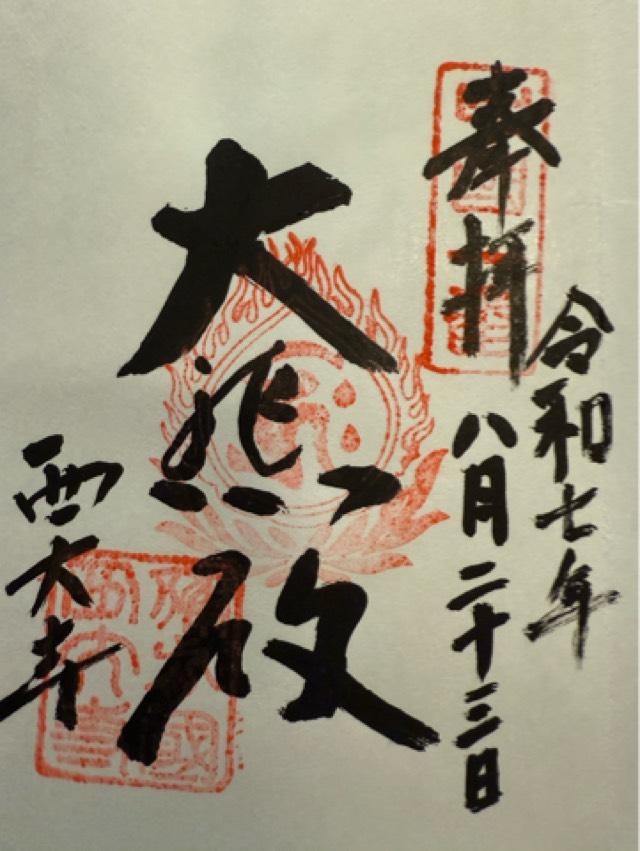 奉拝
令和七年
八月二十三日
大悲殿
西大寺